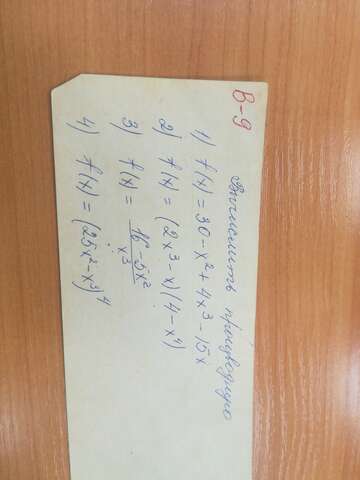 В-9
Вычислить производную
1) f(x) = 30 - x² + 4x³ - 15x
2) f(x) = (2x³ - x)(4 - x⁴)
3) f(x) = (16 - 5x²)/x³
4) f(x) = (25x² - x³)⁴